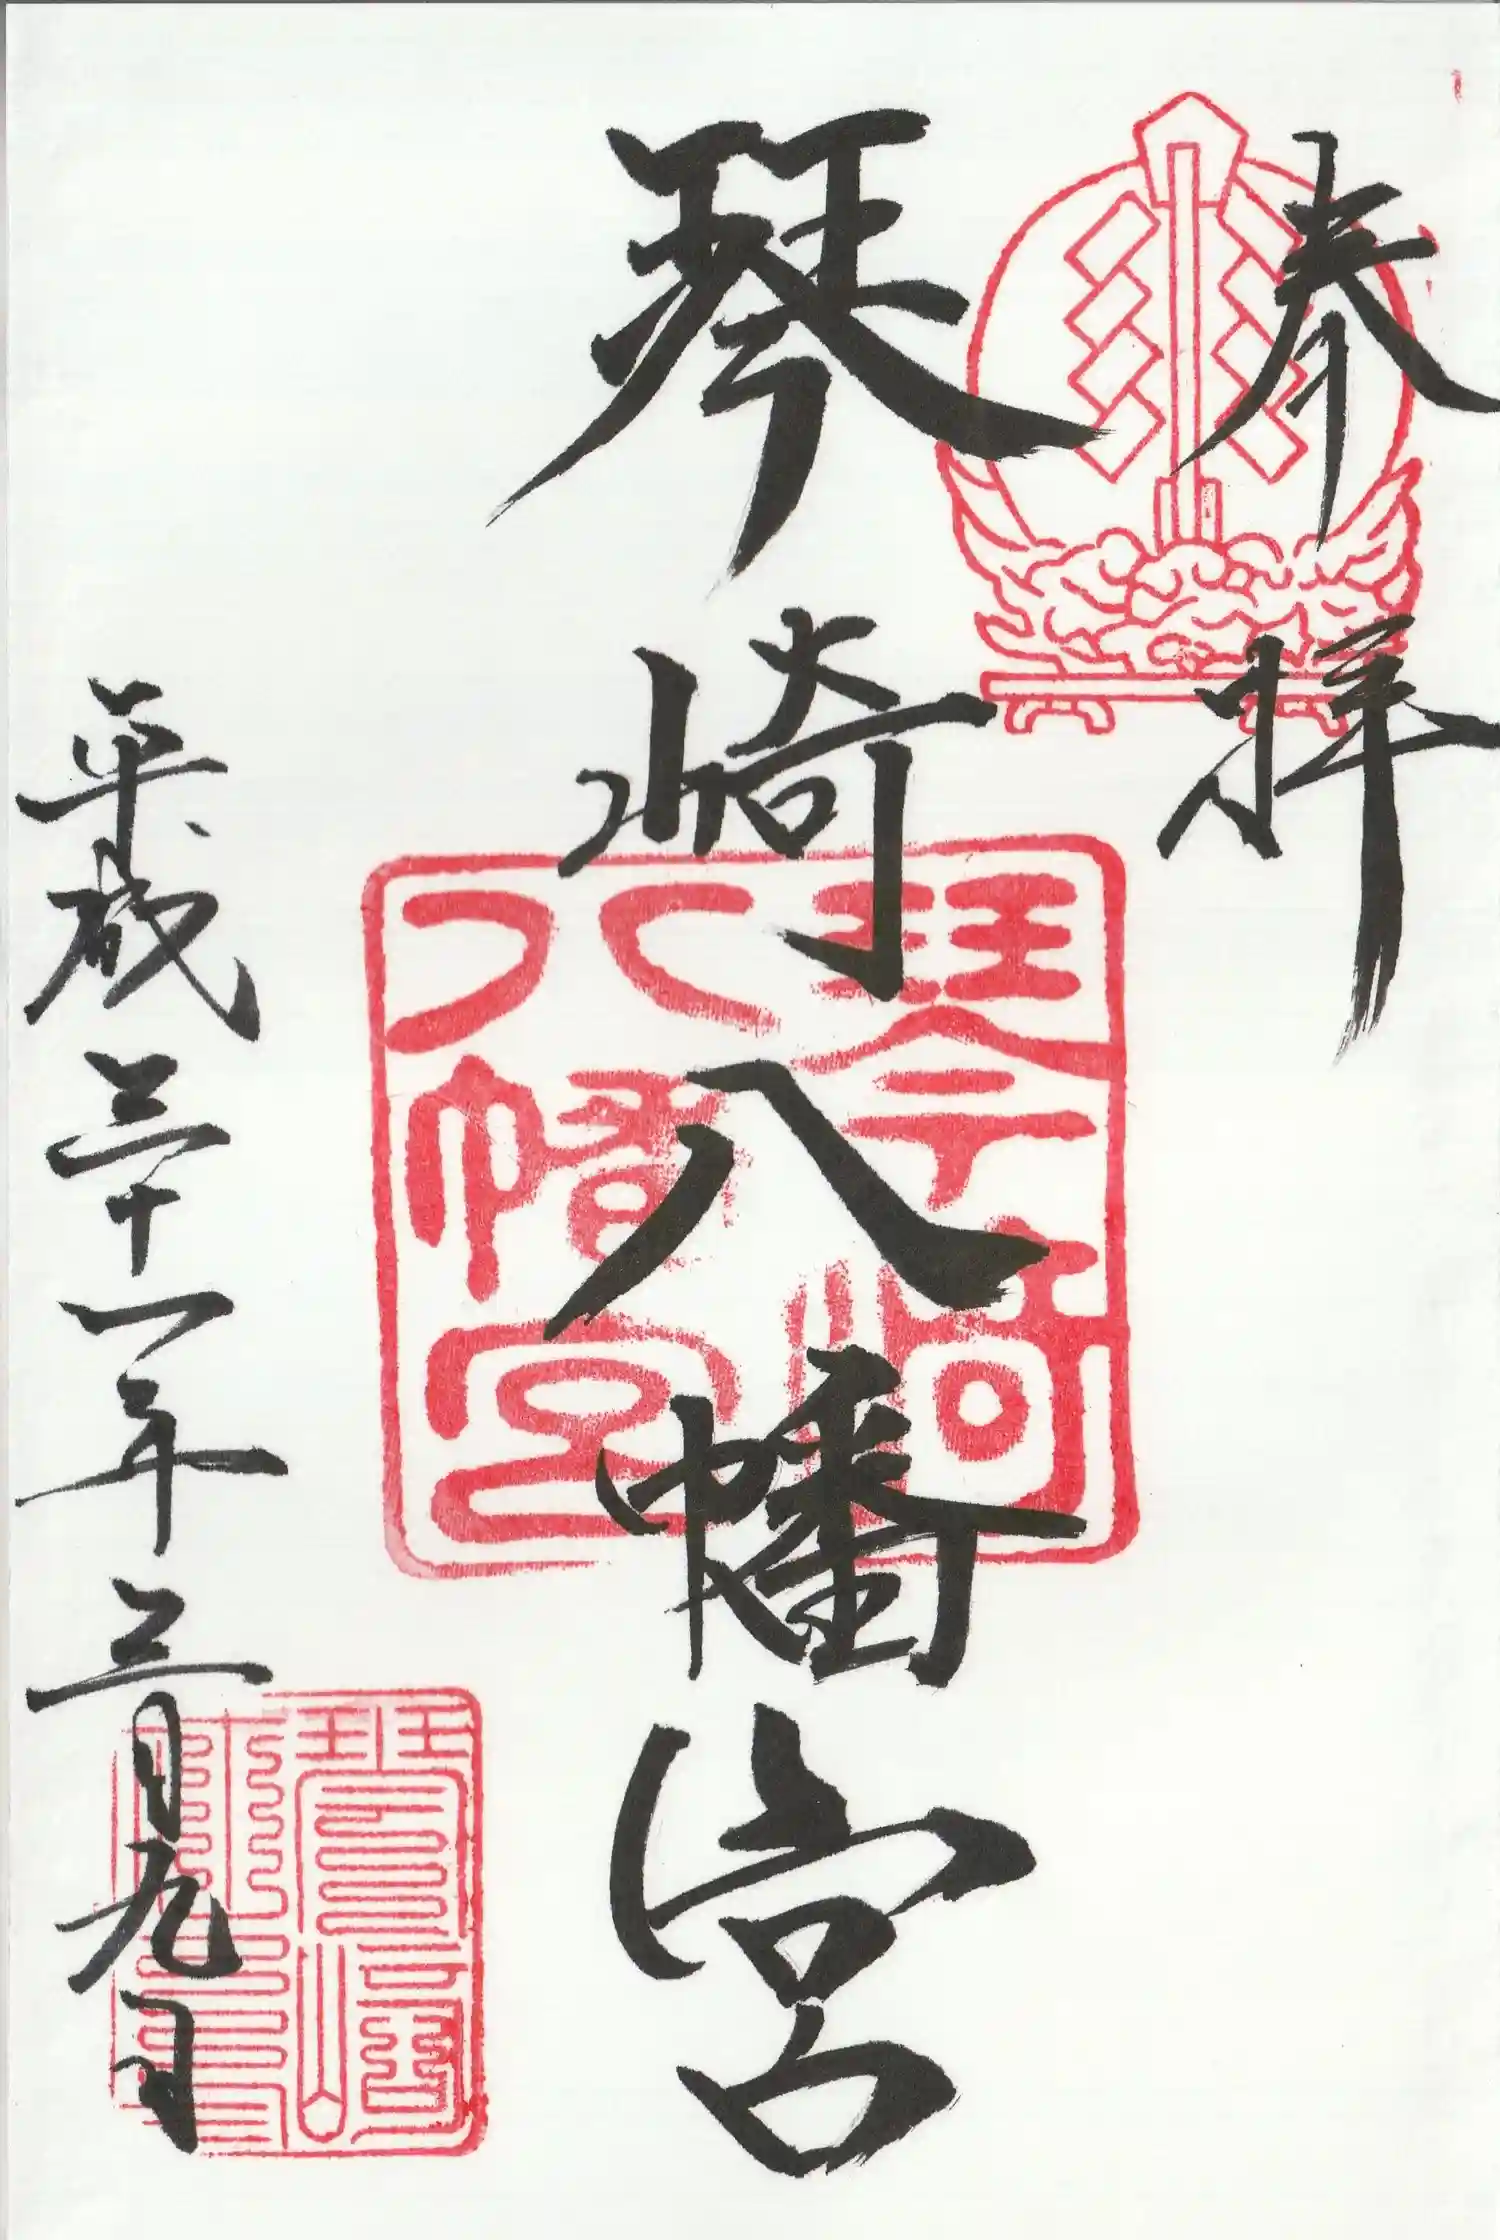 奉拝
琴崎八幡宮
琴崎八幡宮
平成三十一年三月九日